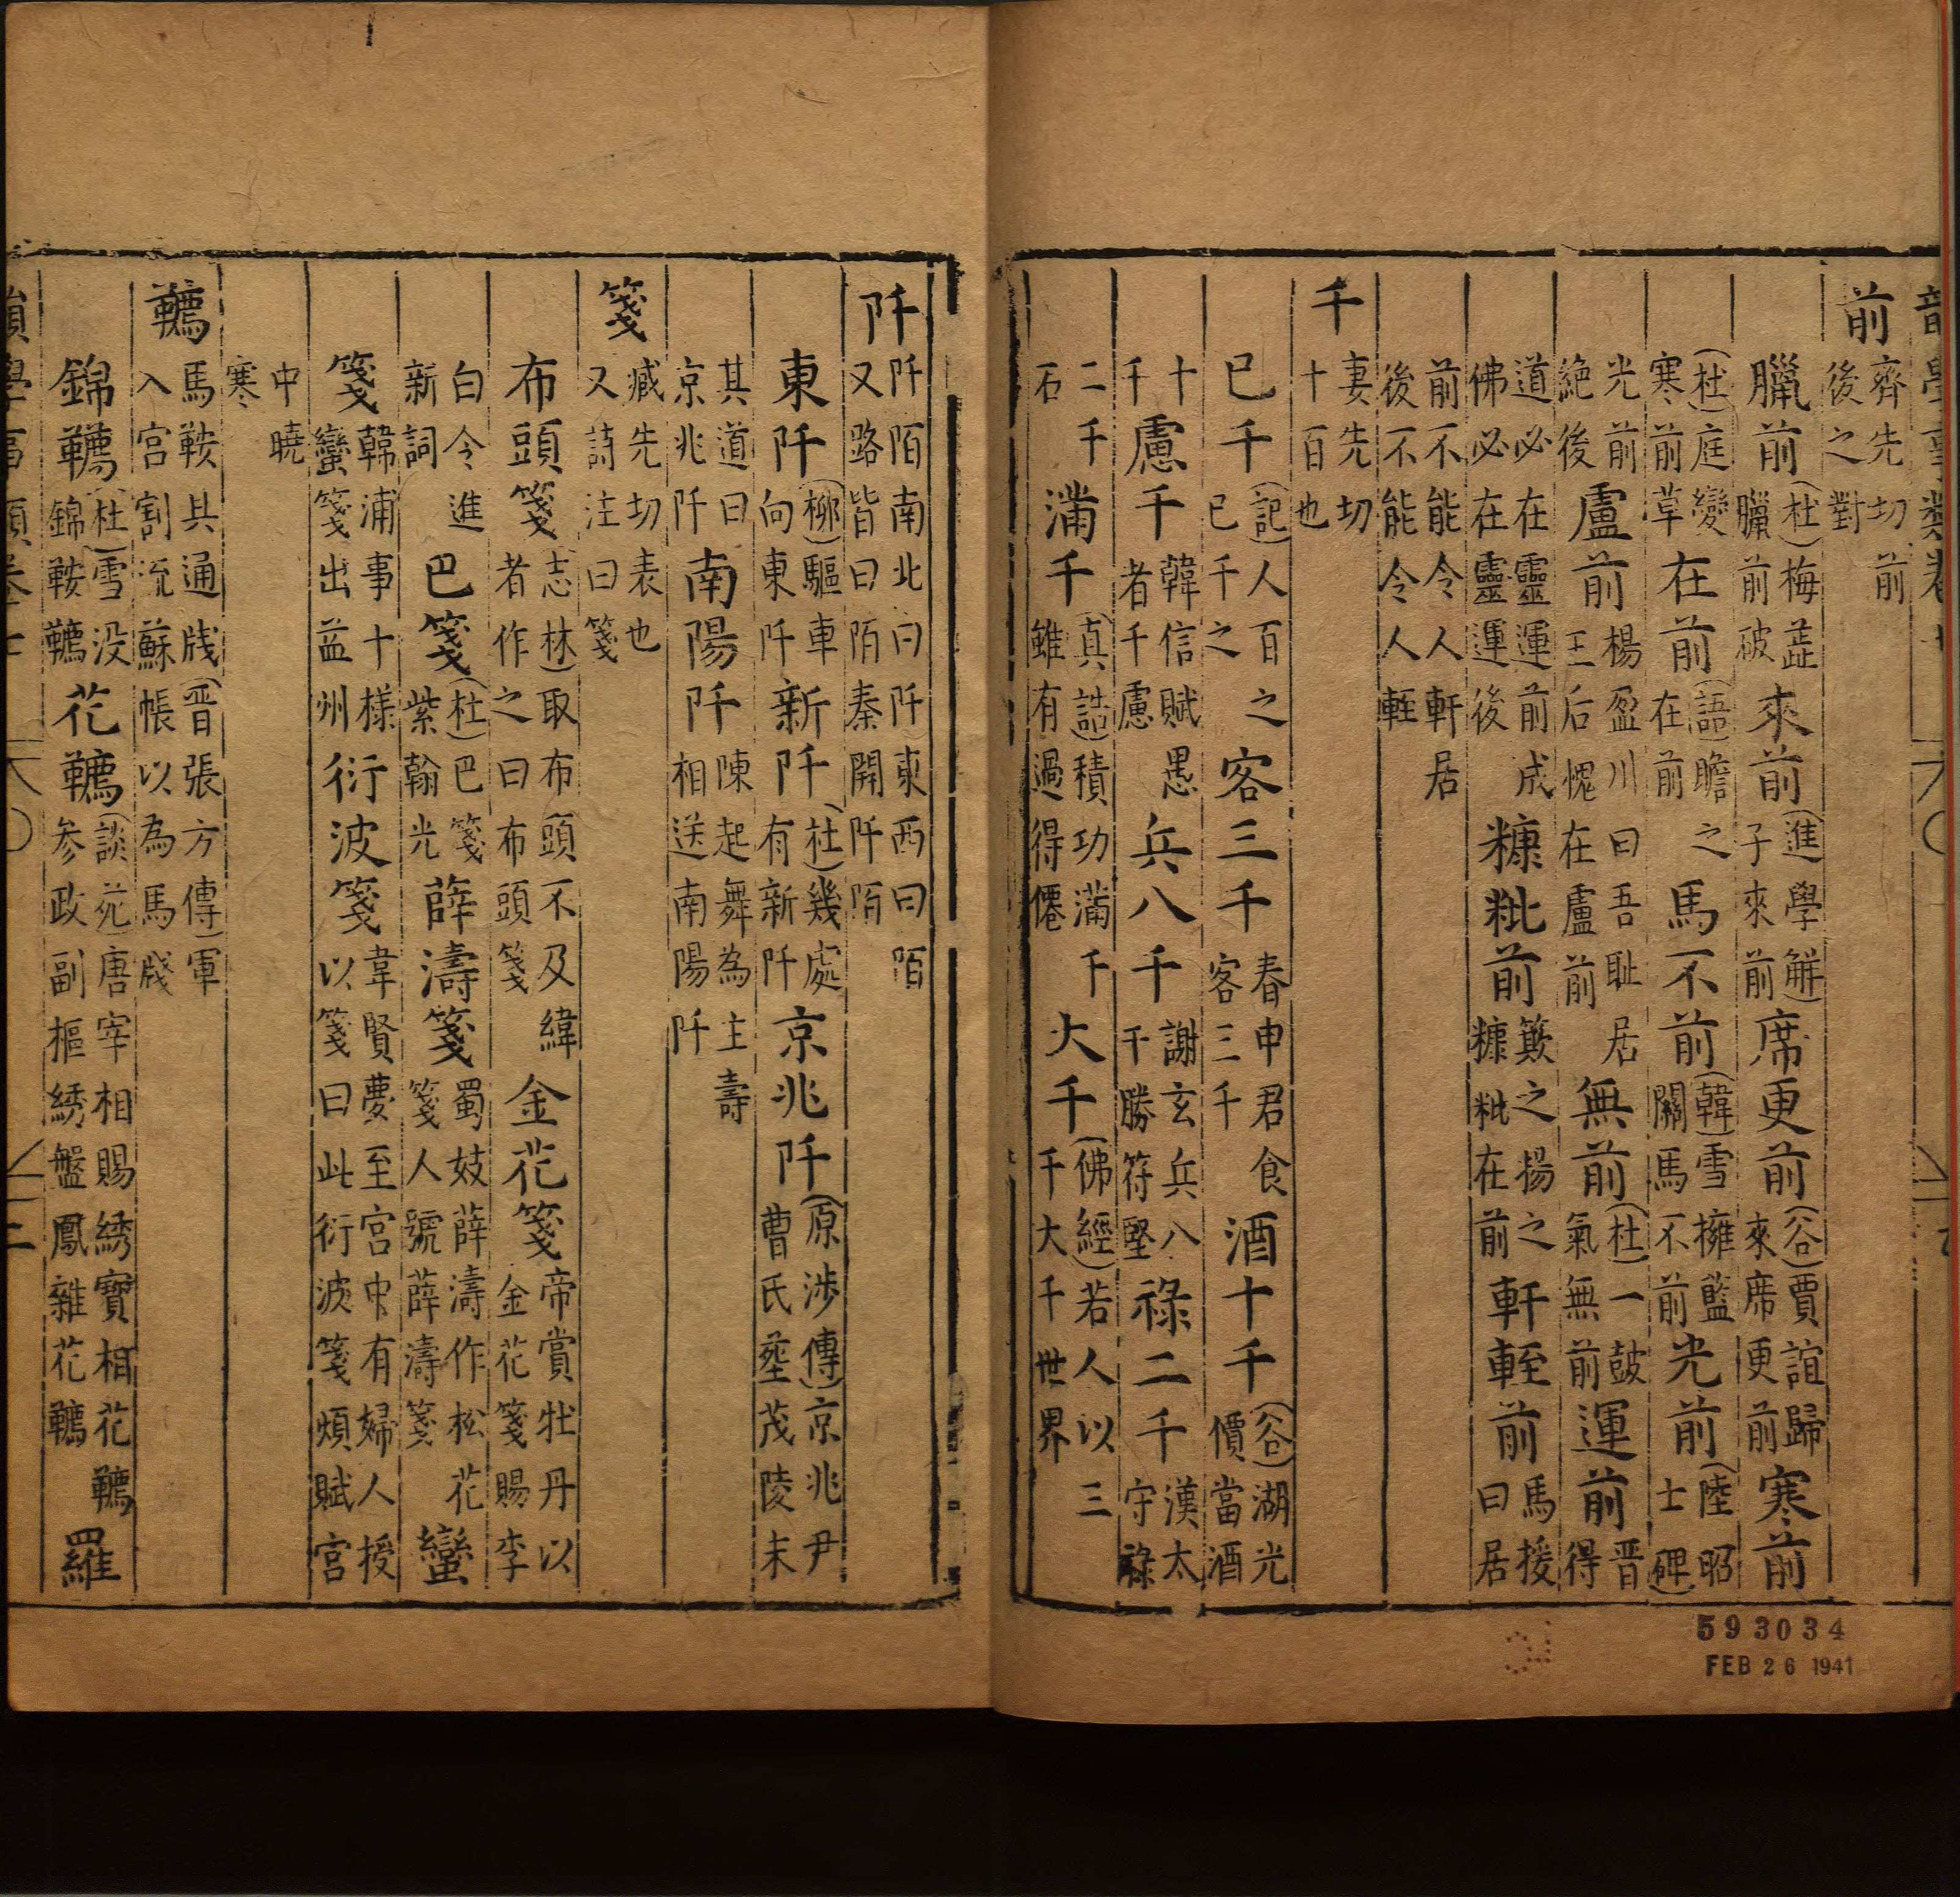 前齊先切前後之對
臘前(杜)梅蕋臘前破來前(進學解)子來前席更前(谷)賈誼歸來席更前寒前
(杜)庭變寒前草在前(語)瞻之在前馬不前(韓)雪擁藍關馬不前光前(陸昭士碑)
光前絶後盧前楊盈川曰吾耻居王后愧在盧前無前(杜)一鼓氣無前運前晋得
道必在靈運前成佛必在靈運後糠粃前簸之揚之糠粃在前軒輊前馬援曰居
前不能令人軒居後不能令人輊
千妻先切十百也
已千(記)人百之已千之客三千春申君食客三千酒十千(谷)湖光價當酒
十千慮千韓信賦愚者千慮兵八千謝玄兵八千勝符堅祿二千漢太守祿
二千石滿千(真誥)積功滿千雖有過得僊大千(佛經)若人以三千大千世界
阡阡陌南北曰阡東西曰陌又路皆曰陌秦開阡陌
東阡(柳)驅車向東阡新阡(杜)幾處有新阡京兆阡(原涉傳)京兆尹曹氏塟茂陵未
其道曰京兆阡南陽阡陳起舞為主壽相送南陽阡
箋臧先切表也又詩注曰箋
布頭箋(志林)取布頭不及緯者作之曰布頭箋金花箋帝賞牡丹以金花箋賜李
白令進新詞巴箋(杜)巴箋紫翰光薛濤箋蜀妓薛濤作松花箋人號薛濤箋蠻
箋韓浦事十樣蠻箋出益州衍波箋韋賢夢至宮中有婦人授以箋曰此衍波箋煩賦宮
中曉寒
韉馬鞍具通牋(晋張方傳)軍入宮割流蘇帳以為馬牋
錦韉(杜)雪没錦鞍韉花韉(談苑)唐宰相賜綉寶相花韉参政副樞綉盤鳳雜花韉羅
593034
FEB 26 1941